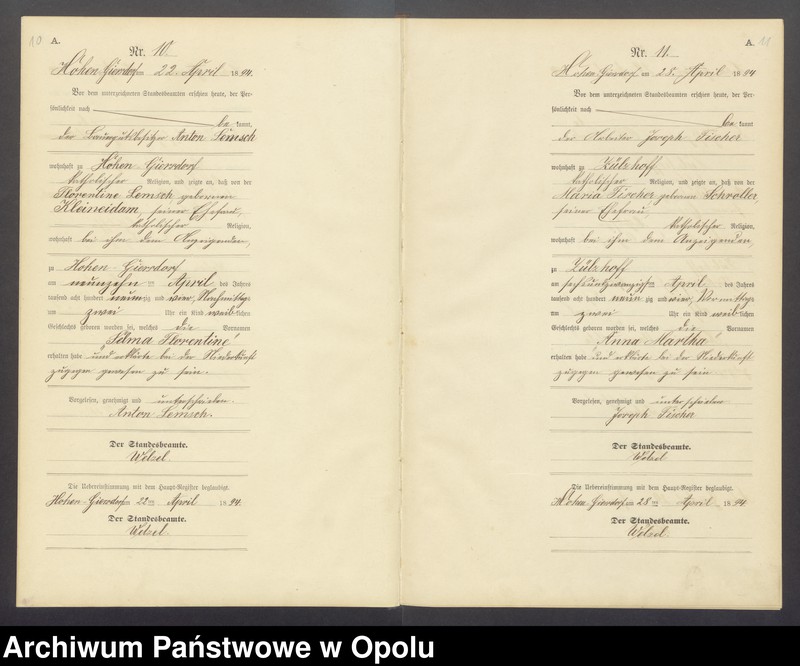 10
A.
Nr. 10.
Hohen-Giersdorf am 22. April 1894.
Vor dem unterzeichneten Standesbeamten erschien heute, der Per-
sönlichkeit nach
be kannt
der Bauergutsbesitzer Anton Lemsch
wohnhaft zu Hohen-Giersdorf
katholischer Religion, und zeigte an, daß von der
Florentine Lemsch geborenen
Kleineidam, seiner Ehefrau,
katholischer Religion,
wohnhaft bei ihm dem Anzeigenden,
zu Hohen-Giersdorf
am neunzehnten April des Jahres
tausend acht hundert neunzig und vier, Nachmittags
um zwei Uhr ein Kind weiblichen
Geschlechts geboren worden sei, welches die Vornamen
Florentine
erhalten habe und erklärte bei der Niederkunft
zugegen gewesen zu sein.
Vorgelesen, genehmigt und unterschrieben.
Anton Lemsch.
Der Standesbeamte.
Welzel
Die Uebereinstimmung mit dem Haupt-Register beglaubigt.
Hohen-Giersdorf am 22ten April 1894.
Der Standesbeamte.
Welzel.
A. 11
Nr. 11.
Hohen-Giersdorf am 28. April 1894
Vor dem unterzeichneten Standesbeamten erschien heute, der Per-
sönlichkeit nach
be kannt
der Arbeiter Joseph Tischer
wohnhaft zu Zülzhoff
katholischer Religion, und zeigte an, daß von der
Maria Tischer geborenen Schroller,
seiner Ehefrau,
katholischer Religion,
wohnhaft bei ihm dem Anzeigenden,
zu Zülzhoff
am sechsundzwanzigsten April des Jahres
tausend acht hundert neunzig und vier, Vormittags
um zwei Uhr ein Kind weiblichen
Geschlechts geboren worden sei, welches die Vornamen
"Anna Martha"
erhalten habe und erklärte bei der Niederkunft
zugegen gewesen zu sein
Vorgelesen, genehmigt und unterschrieben
Joseph Tischer
Der Standesbeamte.
Welzel
Die Uebereinstimmung mit dem Haupt-Register beglaubigt.
Hohen-Giersdorf am 28ten April 1894
Der Standesbeamte.
Welzel.
Archiwum Państwowe w Opolu